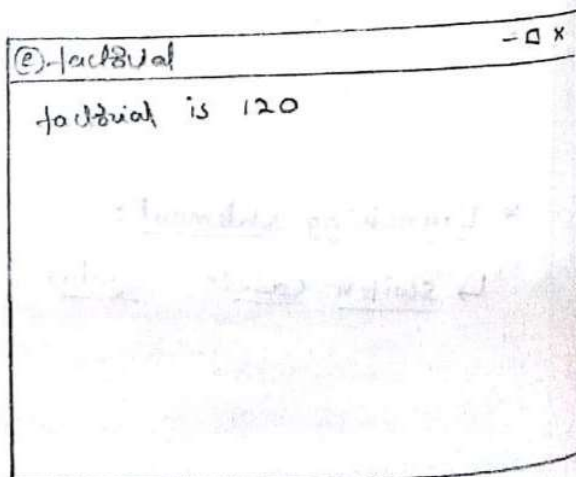 ⓔ factorial - □ ×
factorial is 120